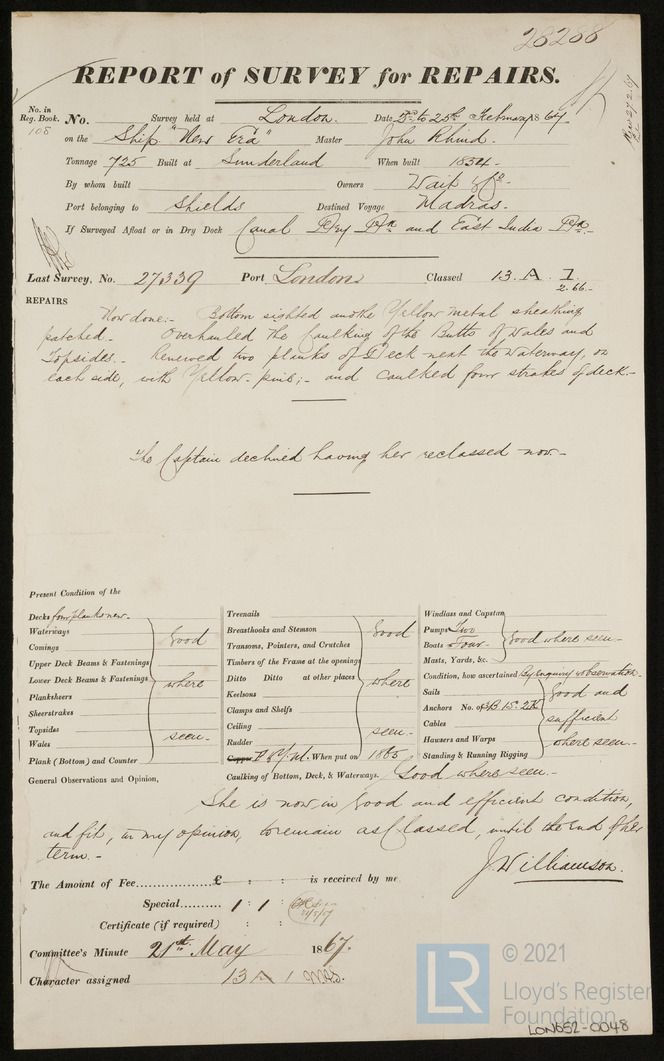 28288
REPORT of SURVEY for REPAIRS.
No. in Reg. Book. 108 No. Survey held at London. Date to 25th February 1867.
on the Ship "New Era" Master John Rhind.
Tonnage 725 Built at Sunderland When built 1854.
By whom built Owners Wait & Co.
Port belonging to Shields Destined Voyage Madras.
If Surveyed Afloat or in Dry Dock Canal Dry Dk. and East India Dk.
Last Survey, No. 27339 Port London Classed 13. A. I
2.66.
REPAIRS
Now done:- Bottom sighted and the Yellow metal sheathing
patched. Overhauled the Caulking of the Butts of Wales and
Topsides. Renewed two planks of Deck next the Waterway, on
each side, with Yellow-pine;- and caulked four strakes of deck.-
The Captain declined having her reclassed now.-
Present Condition of the
Decks four planks new.
Waterways
Comings
Upper Deck Beams & Fastenings
Lower Deck Beams & Fastenings
Planksheers
Sheerstrakes
Topsides
Wales
Plank (Bottom) and Counter
Good
where
seen.
Treenails
Breasthooks and Stemson
Transoms, Pointers, and Crutches
Timbers of the Frame at the openings
Ditto Ditto at other places
Keelsons
Clamps and Shelfs
Ceiling
Rudder
Good
where
seen.
Copper When put on 1865
Caulking of Bottom, Deck, & Waterways. Good where seen.-
Windlass and Capstan
Pumps Two
Boats Four
Masts, Yards, &c.
Good where seen-
Condition, how ascertained By enquiry & observation.
Sails
Anchors No. of 3B. 1S. 2K
Cables
Hawsers and Warps
Standing & Running Rigging
Good and
sufficient
where seen.-
General Observations and Opinion,
She is now in good and efficient condition,
and fit, in my opinion, to remain as Classed, until the end of her
term.-
J. Williamson.
The Amount of Fee................£ : : is received by me
Special......... 1 : 1 :
Certificate (if required) : :
Committee's Minute 21st May 1867.
Character assigned 13 A 1
LR © 2021
Lloyd's Register
Foundation
LON652-0048